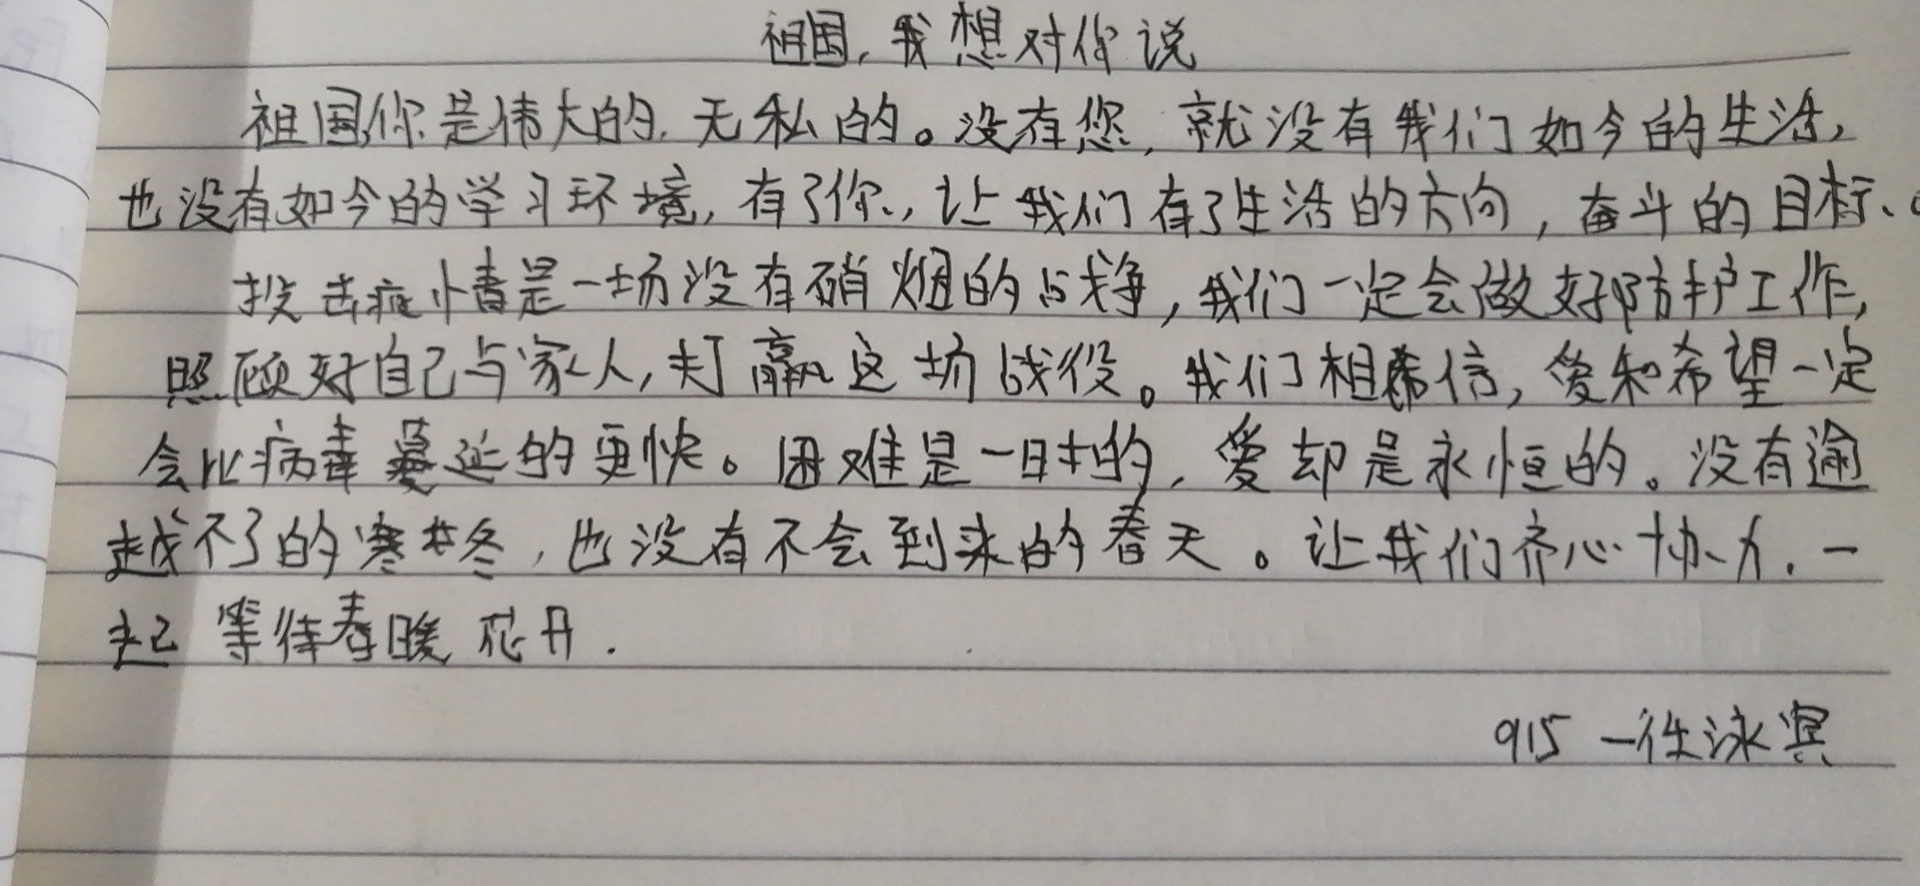 祖国,我想对你说
祖国,你是伟大的,无私的。没有您,就没有我们如今的生活,
也没有如今的学习环境,有了你,让我们有了生活的方向,奋斗的目标、
投击疫情是一场没有硝烟的战争,我们一定会做好防护工作,
照顾好自己与家人,打赢这场战役。我们相信,爱和希望一定
会比病毒蔓延的更快。困难是一时的,爱却是永恒的。没有逾
越不了的寒冬,也没有不会到来的春天。让我们齐心协力.一
起等待春暖花开.
915 一任泳